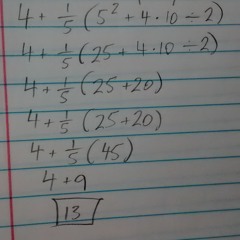 4 + 1/5 (5² + 4 · 10 ÷ 2)
4 + 1/5 (25 + 4 · 10 ÷ 2)
4 + 1/5 (25 + 20)
4 + 1/5 (25 + 20)
4 + 1/5 (45)
4 + 9
13